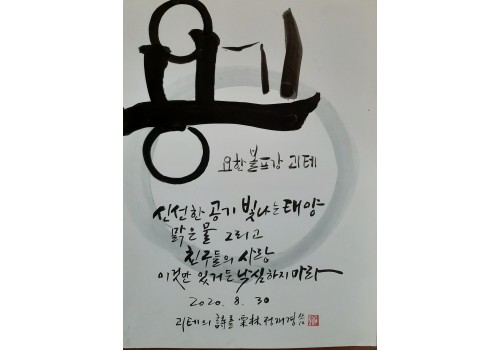 용기
요한볼프강 괴테
신선한 공기 빛나는 태양
맑은 물 그리고
친구들의 사랑
이것만 있거든 낙심하지 마라
2020. 8. 30
괴테의 詩를 栗林 전재경